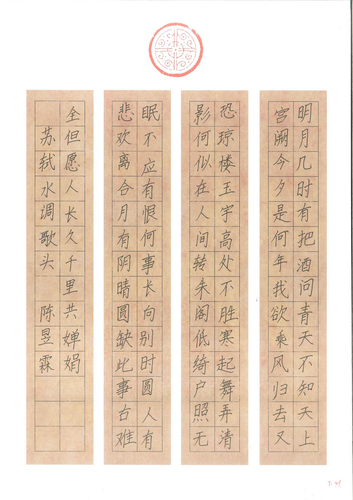 明月几时有把酒问青天不知天上
宫阙今夕是何年我欲乘风归去又
恐琼楼玉宇高处不胜寒起舞弄清
影何似在人间转朱阁低绮户照无
眠不应有恨何事长向别时圆人有
悲欢离合月有阴晴圆缺此事古难
全但愿人长久千里共婵娟
苏轼水调歌头 陈昱霖